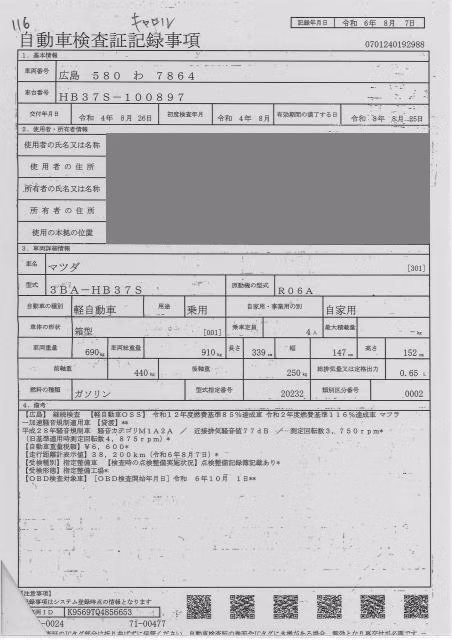 116
キャロル
記録年月日 令和 6年 8月 7日
自動車検査証記録事項
0701240192988
1. 基本情報
車両番号 広島 580 わ 7864
車台番号 HB37S-100897
交付年月日 令和 4年 8月 26日 初度検査年月 令和 4年 8月 有効期間の満了する日 令和 8年 8月 25日
2. 使用者・所有者情報
使用者の氏名又は名称
使用者の住所
所有者の氏名又は名称
所有者の住所
使用の本拠の位置
3. 車両詳細情報
車名 マツダ [301]
型式 3BA-HB37S 原動機の型式 R06A
自動車の種別 軽自動車 用途 乗用 自家用・事業用の別 自家用
車体の形状 箱型 [001] 乗車定員 4人 最大積載量 -kg
車両重量 690kg 車両総重量 910kg 長さ 339cm 幅 147cm 高さ 152cm
前軸重 440kg 後軸重 250kg 総排気量又は定格出力 0.65 L
燃料の種類 ガソリン 型式指定番号 20232 類別区分番号 0002
4. 備考
【広島】 継続検査 【軽自動車OSS】 令和12年度燃費基準85%達成車 令和2年度燃費基準116%達成車 マフラ
ー加速騒音規制適用車 【貸渡】**
平成28年騒音規制車 騒音カテゴリM1A2A / 近接排気騒音値77dB / 測定回転数3,750rpm*
(旧基準適用時測定回転数4,875rpm)*
【自動車重量税額】¥6,600*
【走行距離計表示値】38,200km(令和6年8月7日)*
【受検種別】指定整備車 【検査時の点検整備実施状況】点検整備記録簿記載あり*
【受検形態】指定整備工場*
【OBD検査対象車】[OBD検査開始年月日]令和 6年10月 1日**
注意事項】
録事項はシステム登録時点の情報となります
両ID K9569TQ4856653
-0024 71-00477